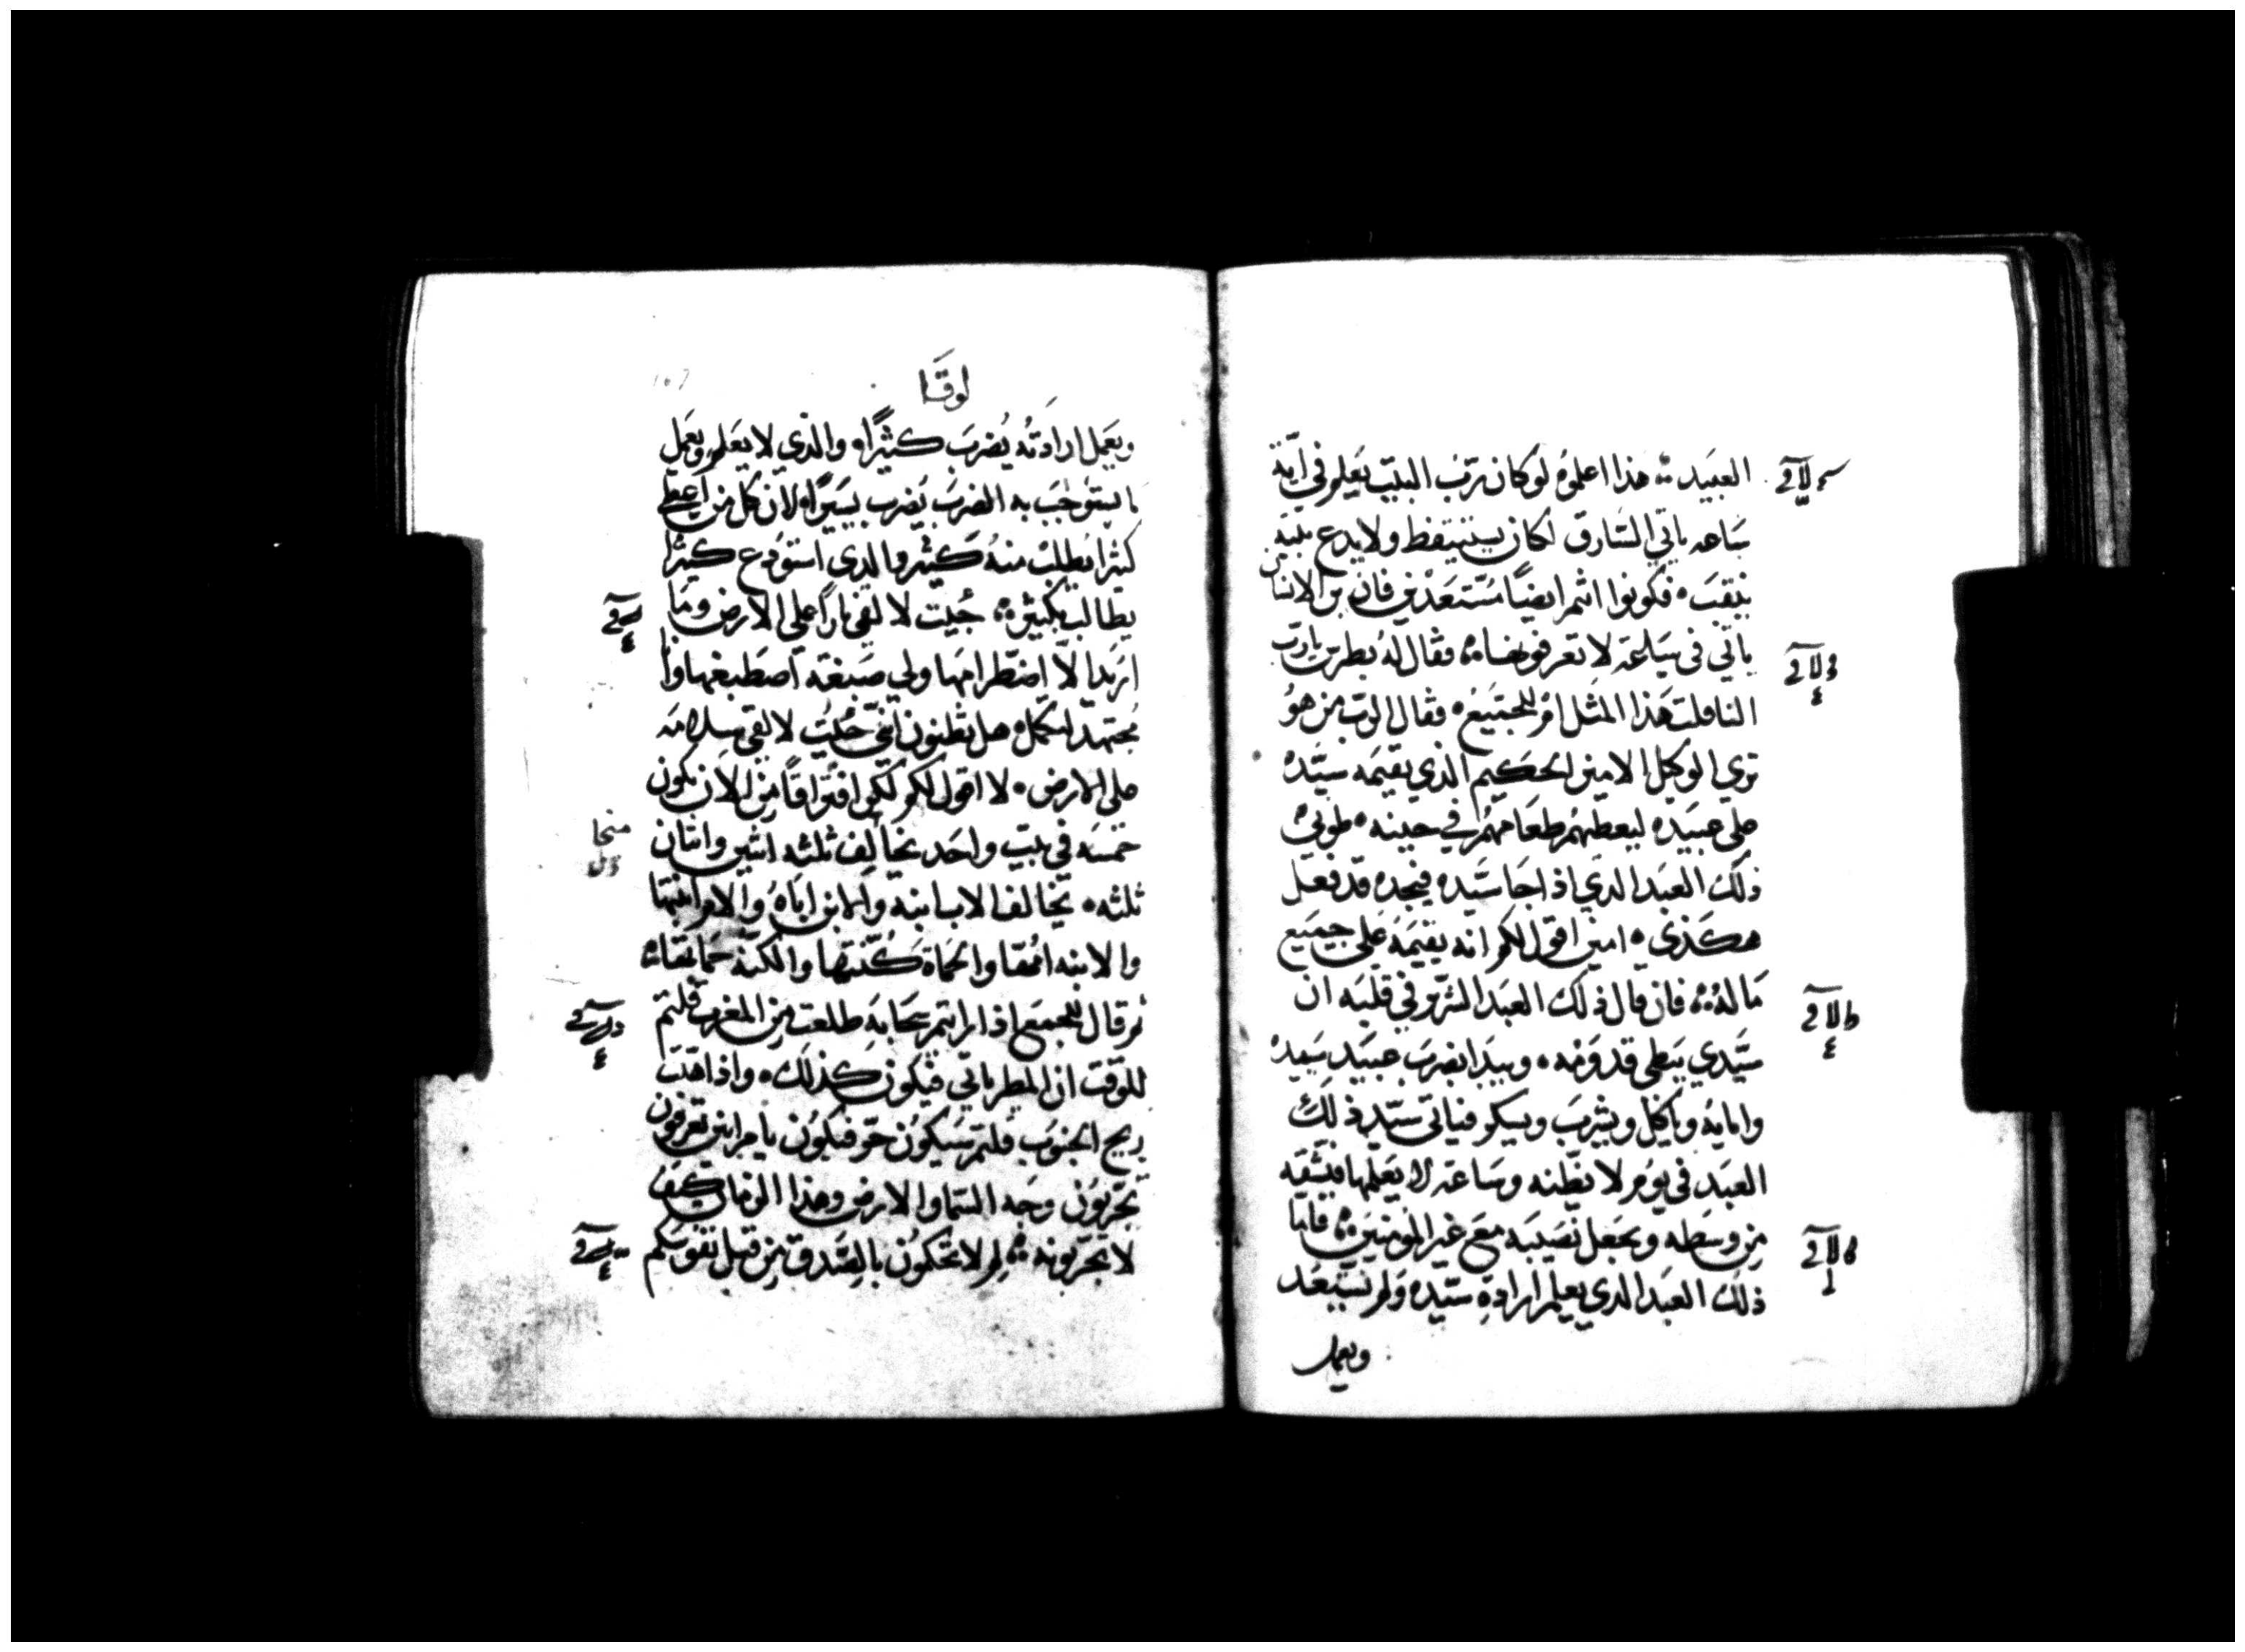 العبيد ؞ هذا اعلموه لو كان رب البيت يعلم في اية
ساعه ياتي السارق لكان يستيقظ ولا يدع بيته
ينقب ٠ فكونوا انتم ايضًا مستعدين فان بن الانسان
ياتي في ساعة لا تعرفونها ؞ فقال له بطرس يا رب
النا قلت هذا المثل ام للجميع ٠ فقال الرب من هو
تري الوكيل الامين الحكيم الذي يقيمه سيّده
علي عبيده ليعطيهم طعامهم في حينه ٠ طوبي
ذلك العبد الذي اذا جا سيّده فيجده قد فعل
هكذي ٠ امين اقول لكم انه يقيمه علي جميع
ماله ؞ فان قال ذلك العبد الشرير في قلبه ان
سيّدي يبطي قدومه ٠ ويبدا يضرب عبيد سيده
وامايه وياكل ويشرب ويسكر فياتي سيّد ذلك
العبد في يوم لا يظنه وساعه لا يعلمها فيشقه
من وسطه ويجعل نصيبه مع غير المومنين ؞ فاما
ذلك العبد الذي يعلم ارادة سيّده ولم يستعد
ويعمل
لوقا
ويعمل ارادته يُضرب كثيرًا ٠ والذي لا يعلم ويعمل
ما يستوجب به الضرب يضرب يسيرًا ٠ لان كل من اعطي
كثيرا يطلب منه كثير والذي استودع كثيرًا
يطالب بكثير ؞ جيت لالقي نارًا علي الارض وما
اريد الا اضطرامها ولي صبغه اصطبغها وانا
مجتهد لتكمل ٠ هل تظنون انني جيت لالقي سلامه
علي الارض ٠ لا اقول لكم لكن افتراقًا من الان يكون
خمسه في بيت واحد يخالف ثلثه اثنين واثنان
ثلثه ٠ يخالف الاب ابنه والابن اباه والام ابنتها
والابنه امها والحماة كنتها والكنه حماتها ؞
ثم قال للجميع اذا رايتم سحابة طلعت من المغرب قلتم
للوقت ان المطر ياتي فيكون كذلك ٠ واذا هبت
ريح الجنوب قلتم سيكون حرّ فيكون يا مرايين تعرفون
تجربون وجه السما والارض وهذا الزمان كيف
لا تجربونه ؞ لم لا تحكمون بالصدق من قبل نفوسكم